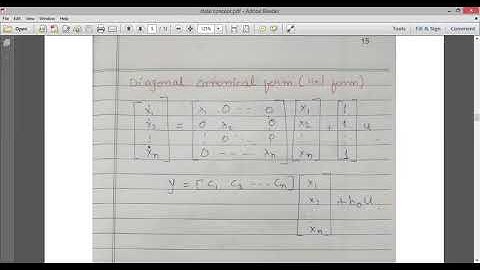 state concept.pdf - Adobe Reader
File Edit View Window Help
Open
125%
Tools Fill & Sign Comment
15
Diagonal canonical form (
form)
[ẋ₁ ẋ₂ ⋮ ẋn] = [λ₁ 0 --- 0; 0 λ₂ 0; ⋮ 0 0; 0 --- λn] [x₁ x₂ ⋮ xn] + [1 1 ⋮ 1] u
y = [c₁ c₂ --- cn] [x₁ x₂ xn] + b₀u